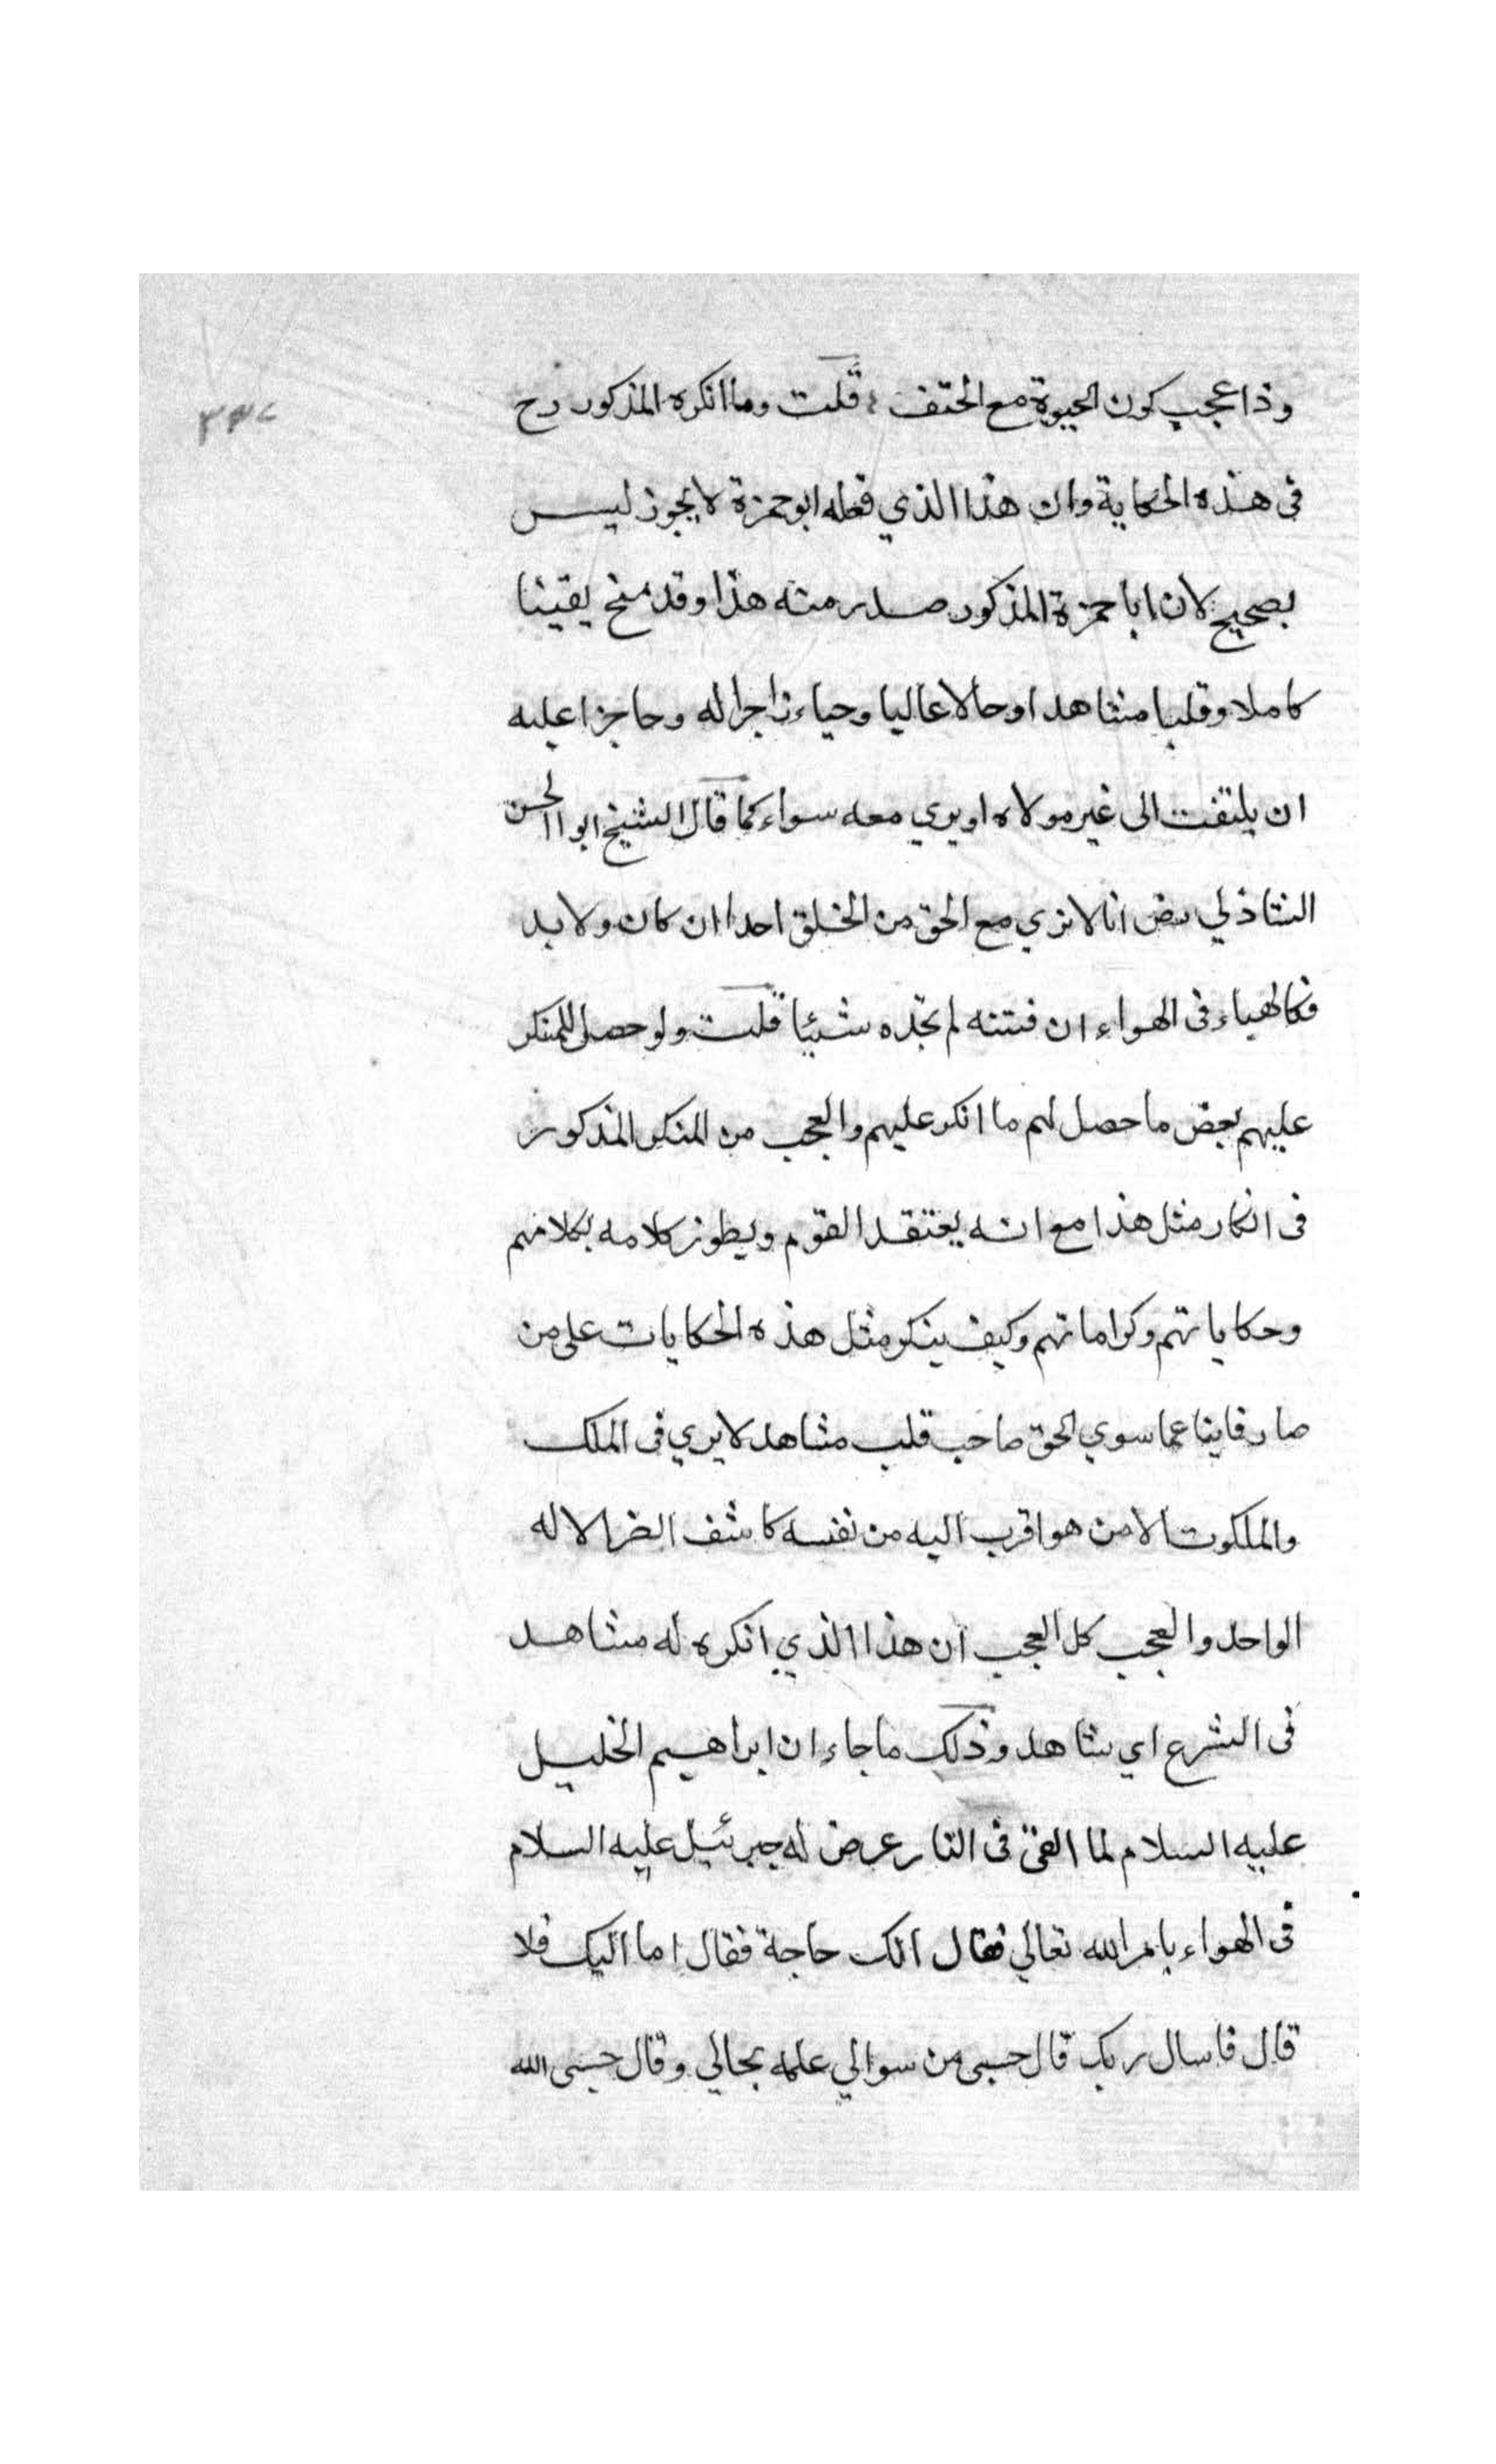 وذا عجيب كون الحيوة مع الحتف قلت وما انكره المذكور رح
٣٣٧
في هذه الحكاية وان هذا الذي فعله ابو حمزة لا يجوز ليس
بصحيح لان ابا حمزة المذكور صدر منه هذا وقد منح يقينا
كاملا وقلبا مشاهدا وحالا عاليا وحياء زاجرا له وحاجزا عليه
ان يلتفت الى غير مولاه او يري معه سواء كما قال الشيخ ابو الحسن
الشاذلي رض انا لا نري مع الحق من الخلق احدا ان كان ولا بد
فكالهباء في الهواء ان فتشته لم تجده شيئا قلت ولو حصل للمنكر
عليهم بعض ما حصل لهم ما انكر عليهم والعجب من المنكر المذكور
في انكار مثل هذا مع انه يعتقد القوم ويطرز كلامه بكلامهم
وحكاياتهم وكراماتهم وكيف ينكر مثل هذه الحكايات على من
صار فانيا عما سوي الحق صاحب قلب مشاهد لا يري في الملك
والملكوت الا من هو اقرب اليه من نفسه كاشف الضر الاله
الواحد والعجب كل العجب ان هذا الذي انكره له مشاهد
في الشرع اي شاهد وذلك ما جاء ان ابراهيم الخليل
عليه السلام لما القي في النار عرض له جبرئيل عليه السلام
في الهواء بامر الله تعالي فقال الك حاجة فقال اما اليك فلا
قال فاسال ربك قال حسبي من سوالي علمه بحالي وقال حسبي الله